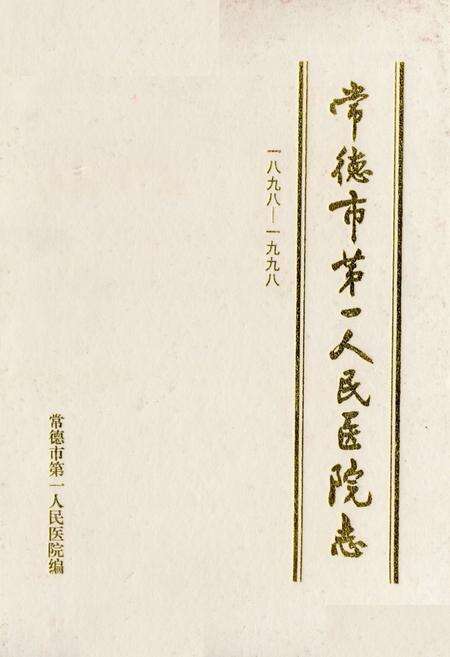 常德市第一人民医院志
一八九八—一九九八
常德市第一人民医院编